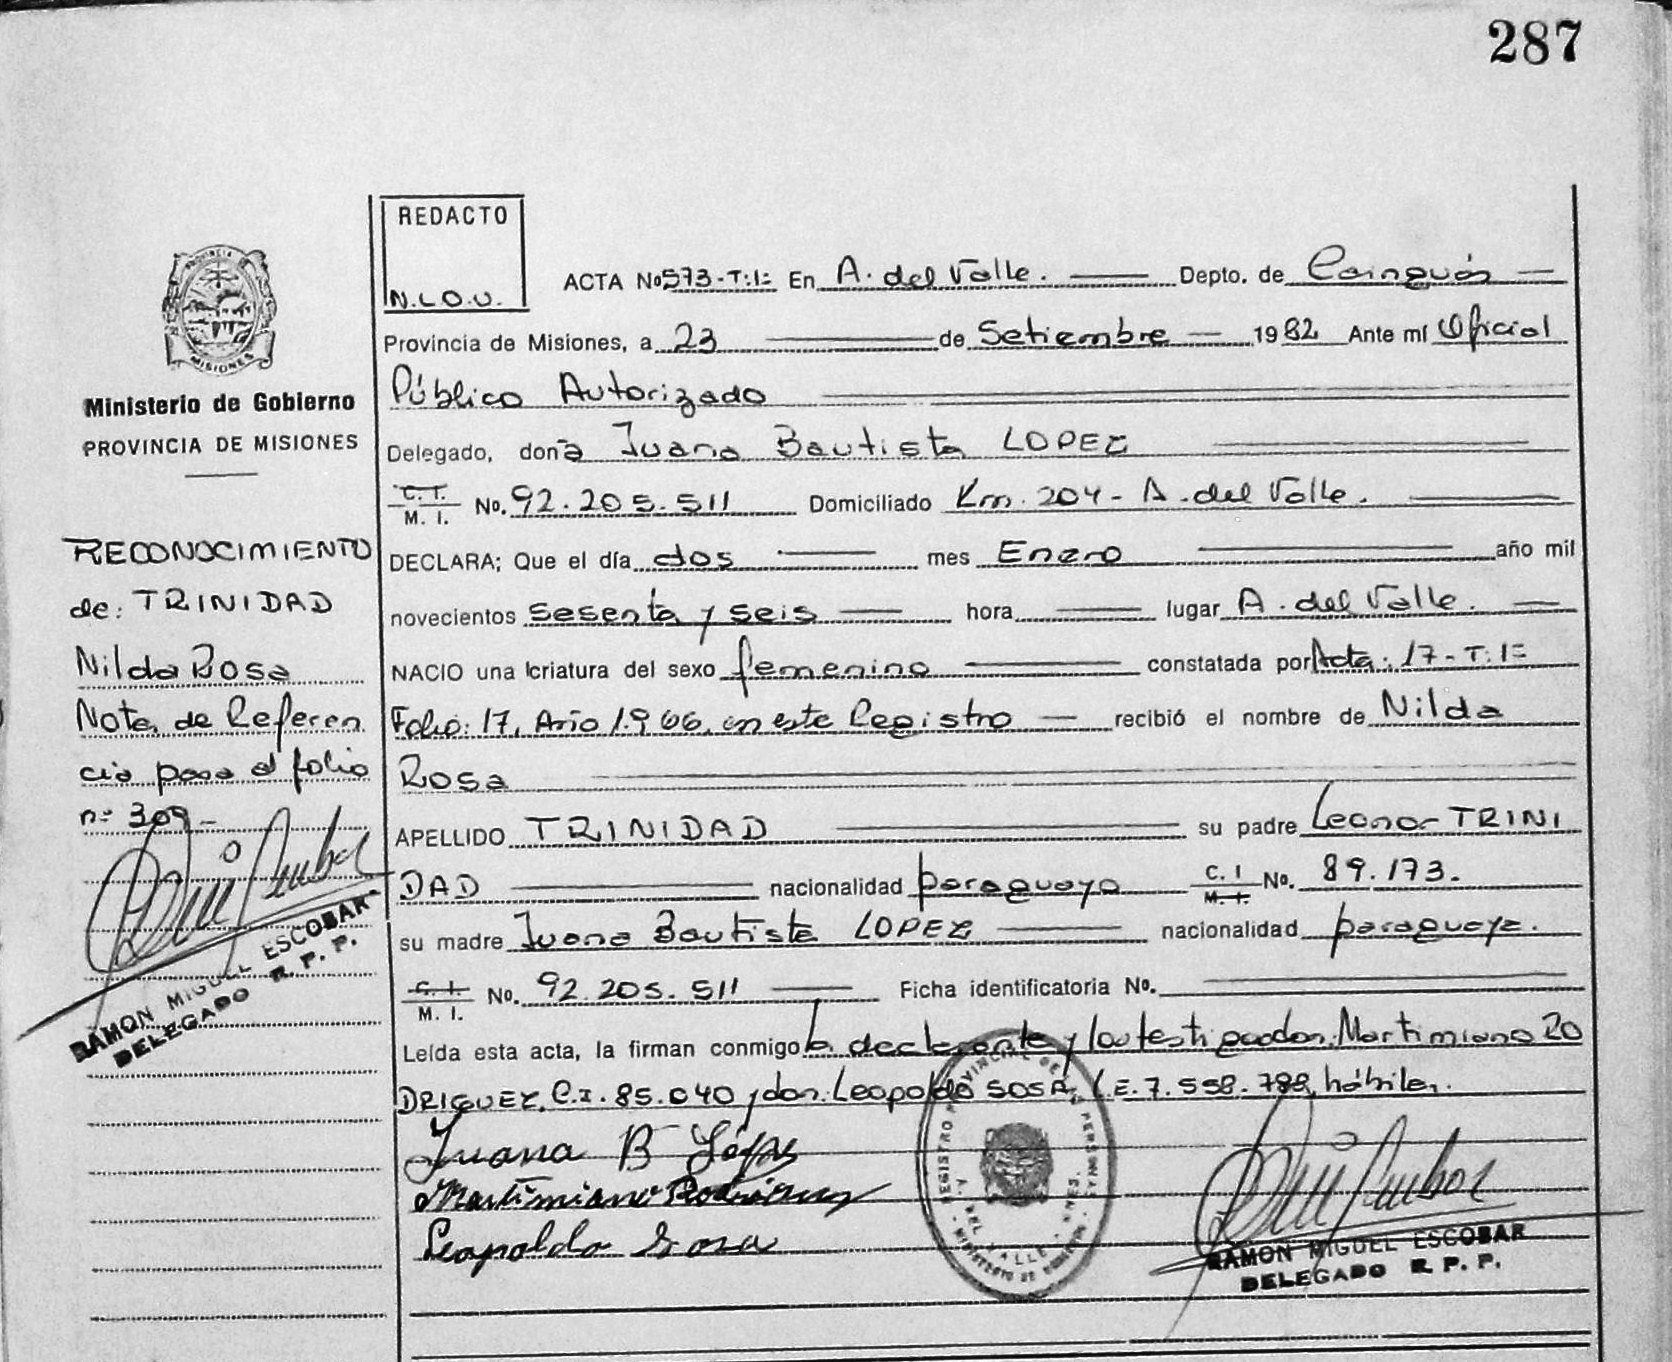 287
REDACTO
N.L.O.U.
PROVINCIA DE
MISIONES
Ministerio de Gobierno
PROVINCIA DE MISIONES
RECONOCIMIENTO
de: TRINIDAD
Nilda Rosa
Nota de Referen
cia pasa al folio
nº 309-
RAMON MIGUEL ESCOBAR
DELEGADO R. P. P.
ACTA No 573-T:1º En A. del Valle. Depto. de Cainguás
Provincia de Misiones, a 23 de Setiembre 1982 Ante mí Oficial
Público Autorizado
Delegado, doña Juana Bautista LOPEZ
C. I. M. I. No. 92.205.511 Domiciliado Km. 204- A. del Valle.
DECLARA; Que el día dos mes Enero año mil
novecientos sesenta y seis hora lugar A. del Valle.
NACIO una criatura del sexo femenino constatada por Acta: 17-T:1º
Folio: 17, Año 1.966, en este Registro recibió el nombre de Nilda
Rosa
APELLIDO TRINIDAD su padre Leonor TRINI
DAD nacionalidad paraguaya C. I M. I. No. 89.173.
su madre Juana Bautista LOPEZ nacionalidad paraguaya.
C. I. M. I. No. 92.205.511 Ficha identificatoria No.
Leída esta acta, la firman conmigo la declarante y los testigos don: Martimiano RO
DRIGUEZ, C.I. 85.040 y don: Leopoldo SOSA, L.E. 7.558.788, hábiles.
Juana B López
Martimiano Rodriguez
Leopoldo Sosa
RAMON MIGUEL ESCOBAR
DELEGADO R. P. P.